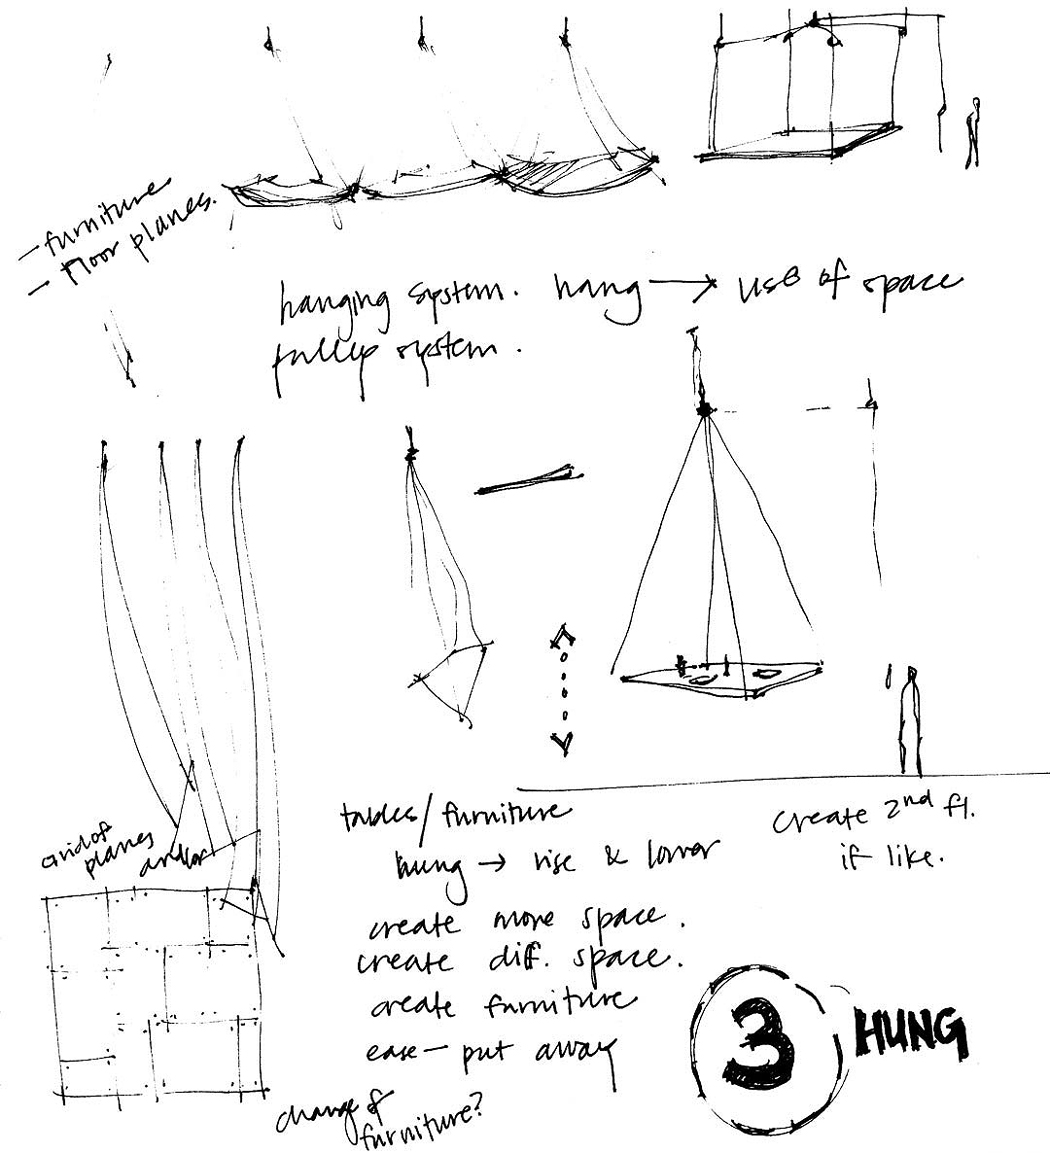 – furniture
– Floor planes.
hanging system. hang → use of space
pulley system.
grid of
planes
and/or
tables/furniture
hung → rise & lower
create more space.
create dif. space.
create furniture
ease – put away
change of
furniture?
create 2nd fl.
if like.
3 HUNG